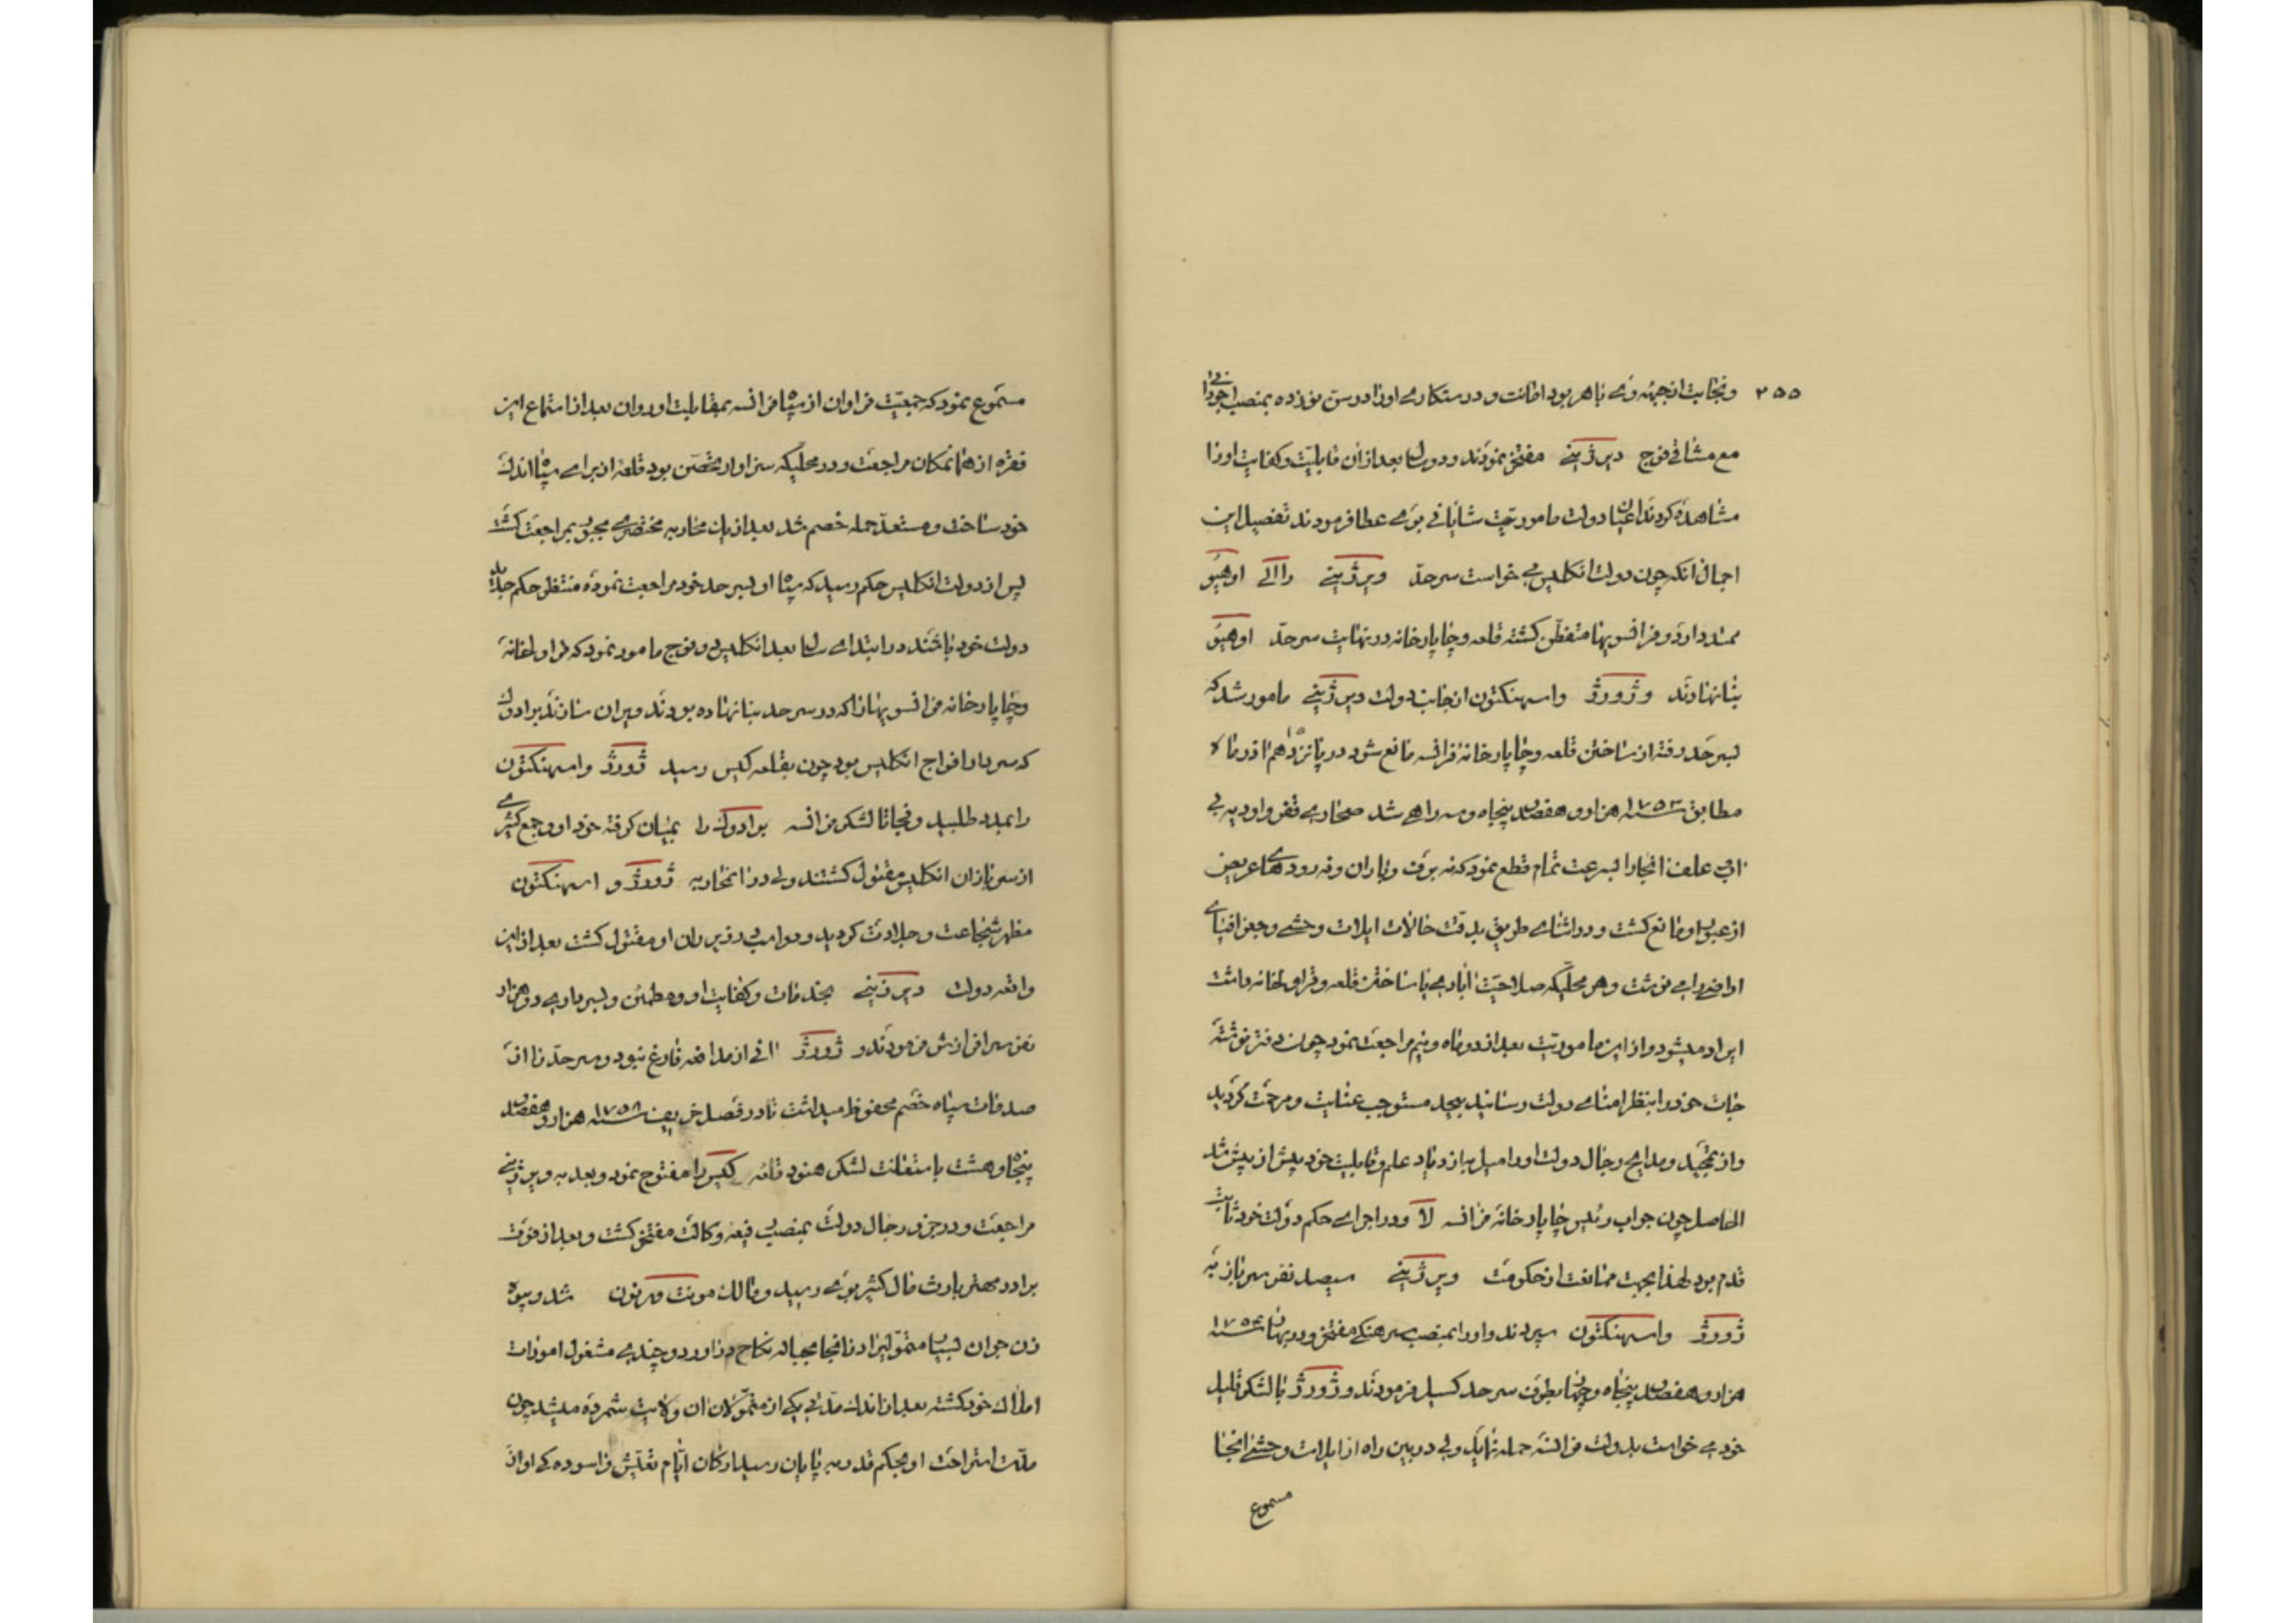 ۲۵۵
ونجابت از جبهه وی باهر بود امانت و درستکاری او را در سن نوزده بمنصب اجودانی
مع مشاقی فوج ویرژینی مفتخر نمودند و دو سال بعد از آن قابلیت و کفایت او را
مشاهده کردند اعیان دولت ماموریت شایانی بوی عطا فرمودند تفصیل این
اجمال آنکه چون دولت انکلیس می خواست سرحد ویرژینی را الی اوهیو
ممتد دارد و فرانسویها متفطن کشته قلعه و چاپارخانه در نهایت سرحد اوهیو
بنا نهادند و ژورژ واسهنکتون از جانب دولت ویرژینی مامور شد که
بسرحد رفته از ساختن قلعه و چاپارخانه فرانسه مانع شود در پانزدهم اذرماه
مطابق سنه ۱۷۵۳ هزار و هفتصد پنجاه و سه راهی شد صحاری قفر و اودیه بی
آبی علف آنجا را بسرعت تمام قطع نمود که نه برف و باران و نه رودهای عریض
از عبور او مانع کشت و در اثنای طریق بدقت حالات ایلات وحشی و جغرافیای
اراضی را می نوشت و هر محلیکه صلاحیت آبادی یا ساختن قلعه و قراولخانه داشت
ایراد میشود و از این ماموریت بعد از دو ماه و نیم مراجعت نمود چون دفتر نوشته
جات خود را بنظر امنای دولت رسانید بیحد مستوجب عنایت و مرحمت کردید
و از تمجید و مدایح رجال دولت او را میل بازدیاد علم و قابلیت خود بیش از پیش شد
الحاصل چون جواب رئیس چاپارخانه فرانسه لا و در اجرای حکم دولت خود ثابت
قدم بود لهذا بجهت ممانعت از حکومت ویرژینی سیصد نفر سرباز به
ژورژ واسهنکتون سپردند و او را بمنصب سرهنکی مفتخر و در بهار سنه ۱۷۵۴
هزار و هفتصد پنجاه و چهار بطرف سرحد کسیل فرمودند و ژورژ با لشکر قلیل
خود می خواست بدولت فرانسه حمله نماید ولی در بین راه از ایلات وحشی انجا
مسموع
مسموع نمود که جمعیت فراوان از سپاه فرانسه بمقابلت او روان بعد از استماع این
فقره از همانمکان مراجعت و در محلیکه سزاوار تحصن بود قلعه از برای سپاه اندک
خود ساخت و مستعد حمله خصم شد بعد از یک محاربه مختصری مجبور بمراجعت کشت
پس از دولت انکلیس حکم رسید که سپاه او بسرحد خود مراجعت نموده منتظر حکم جدید
دولت خود باشند در ابتدای سال بعد انکلیس دو فوج مامور نمود که قراولخانه
و چاپارخانه فرانسویها را که در سرحد بنا نهاده بودند ویران سازند برادوک
که سردار افواج انکلیس بود چون بقلعه کیس رسید ژورژ واسهنکتون
را بمدد طلبید و فجاتا لشکر فرانسه برادوک را بمیان کرفته خود او و جمع کثیری
از سربازان انکلیس مقتول کشتند ولی در آنمحاربه ژورژ و اسهنکتون
مظهر شجاعت و جلادت کردید و دو اسب در زیر ران او مقتول کشت بعد از این
واقعه دولت ویرژینی بخدمات و کفایت او و مطمئن و بسرداری دو هزار
نفر سرافرازش فرمودند و ژورژ آنی از مدافعه فارغ نبود و سرحد را از
صدمات سپاه خصم محفوظ میداشت تا در فصل خریف سنه ۱۷۵۸ هزار و هفتصد
پنجاه و هشت باستعانت لشکر هنود قلعه کیس را مفتوح نمود و بعد به ویرژینی
مراجعت و در جزو رجال دولت بمنصب رفیعه وکالت مفتخر کشت و بعد از فوت
برادر مهتر بارث مال کثیر بوی رسید و مالک مونت ورنون شد و بیوه
زن جوان بسیار متموله را در انجا بحباله نکاح دراورد و چندی مشغول امورات
املاک خود کشته بعد از اندک مدتی یکی از متمولان آن ولایت شمرده میشد چون
مدت استراحت او بحکم قدر به پایان رسید ارکان ایام تعیش فراسوده که او از